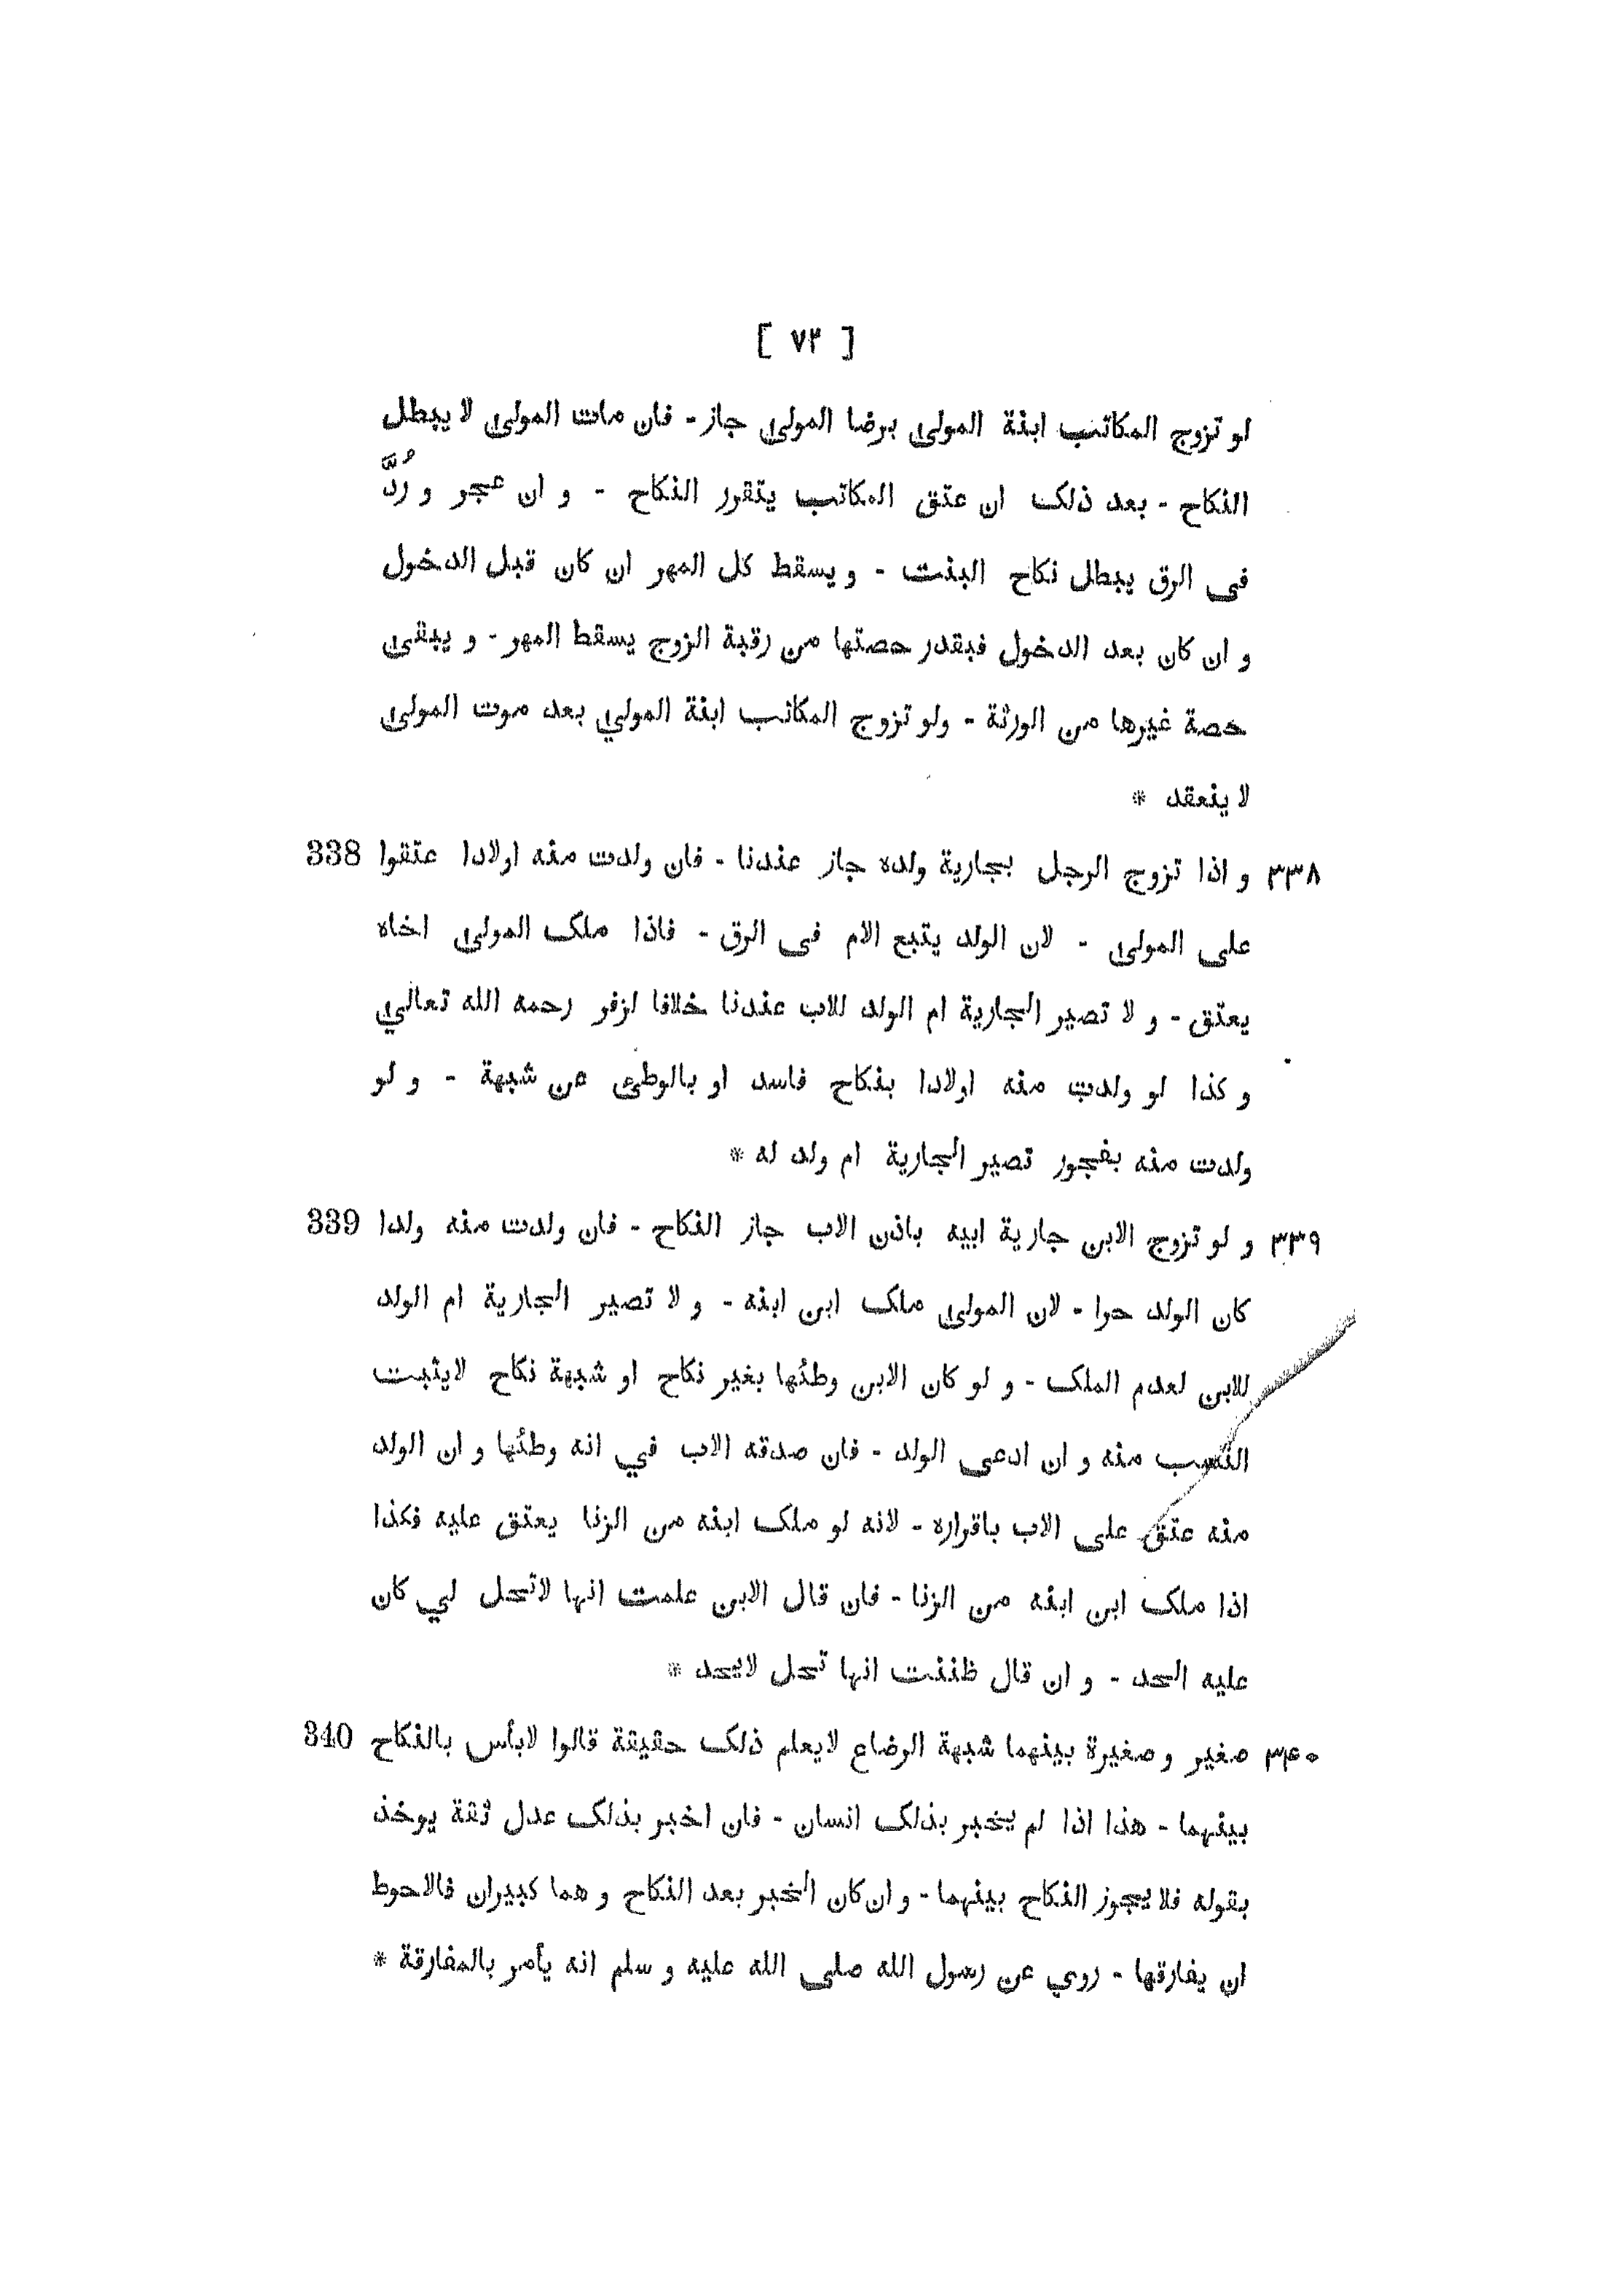 [ ٧٣ ]
لو تزوج المكاتب ابنة المولى برضا المولى جاز - فان مات المولى لا يبطل
النكاح - بعد ذلك ان عتق المكاتب يتقرر النكاح - و ان عجر و رُدَّ
فى الرق يبطل نكاح البنت - و يسقط كل المهر ان كان قبل الدخول
و ان كان بعد الدخول فبقدر حصتها من رقبة الزوج يسقط المهر - و يبقى
حصة غيرها من الورثة - ولو تزوج المكاتب ابنة المولي بعد موت المولى
لا ينعقد *
٣٣٨ و اذا تزوج الرجل بجارية ولده جاز عندنا - فان ولدت منه اولادا عتقوا 338
على المولى - لان الولد يتبع الام فى الرق - فاذا ملك المولى اخاه
يعتق - و لا تصير الجارية ام الولد للاب عندنا خلافا لزفر رحمه الله تعالي
و كذا لو ولدت منه اولادا بنكاح فاسد او بالوطى عن شبهة - و لو
ولدت منه بفجور تصير الجارية ام ولد له *
٣٣٩ و لو تزوج الابن جارية ابيه باذن الاب جاز النكاح - فان ولدت منه ولدا 339
كان الولد حرا - لان المولى ملك ابن ابنه - و لا تصير الجارية ام الولد
للابن لعدم الملك - و لو كان الابن وطئها بغير نكاح او شبهة نكاح لايثبت
النسب منه و ان ادعى الولد - فان صدقه الاب في انه وطئها و ان الولد
منه عتق على الاب باقراره - لانه لو ملك ابنه من الزنا يعتق عليه فكذا
اذا ملك ابن ابنه من الزنا - فان قال الابن علمت انها لاتحل لي كان
عليه الحد - و ان قال ظننت انها تحل لايحد *
٣٤٠ صغير و صغيرة بينهما شبهة الرضاع لايعلم ذلك حقيقة قالوا لابأس بالنكاح 340
بينهما - هذا اذا لم يخبر بذلك انسان - فان اخبر بذلك عدل ثقة يوخذ
بقوله فلا يجوز النكاح بينهما - و ان كان الخبر بعد النكاح و هما كبيران فالاحوط
ان يفارقها - روي عن رسول الله صلى الله عليه و سلم انه يأمر بالمفارقة *